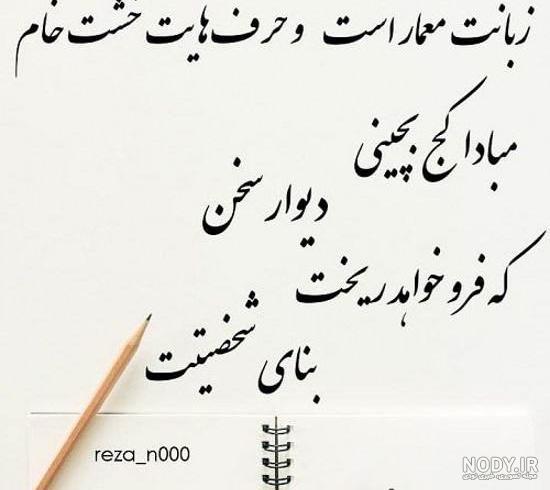 زبانت معمار است و حرف‌هایت خشت خام
مبادا کج بچینی
دیوار سخن
که فرو خواهد ریخت
بنای شخصیتت
reza_n000
NODY.IR